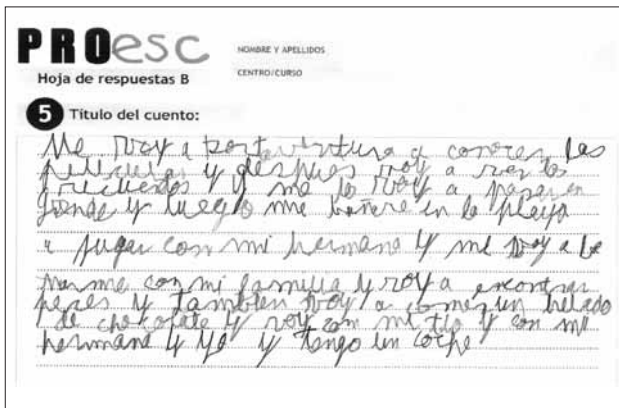 PROesc
NOMBRE Y APELLIDOS
Hoja de respuestas B
CENTRO/CURSO
5 Título del cuento:
Me voy a port ventura a conocer las
peliculas y despues voy a ver los
recuerdos y me lo voy a pasar en
grande y luego me bañare en la playa
a jugar con mi hermano y me voy a ba
ñarme con mi familia y voy a encontrar
peces y tambien voy a comer un helado
de chocolate y voy con mi tio y con mi
hermano y yo y tengo un coche